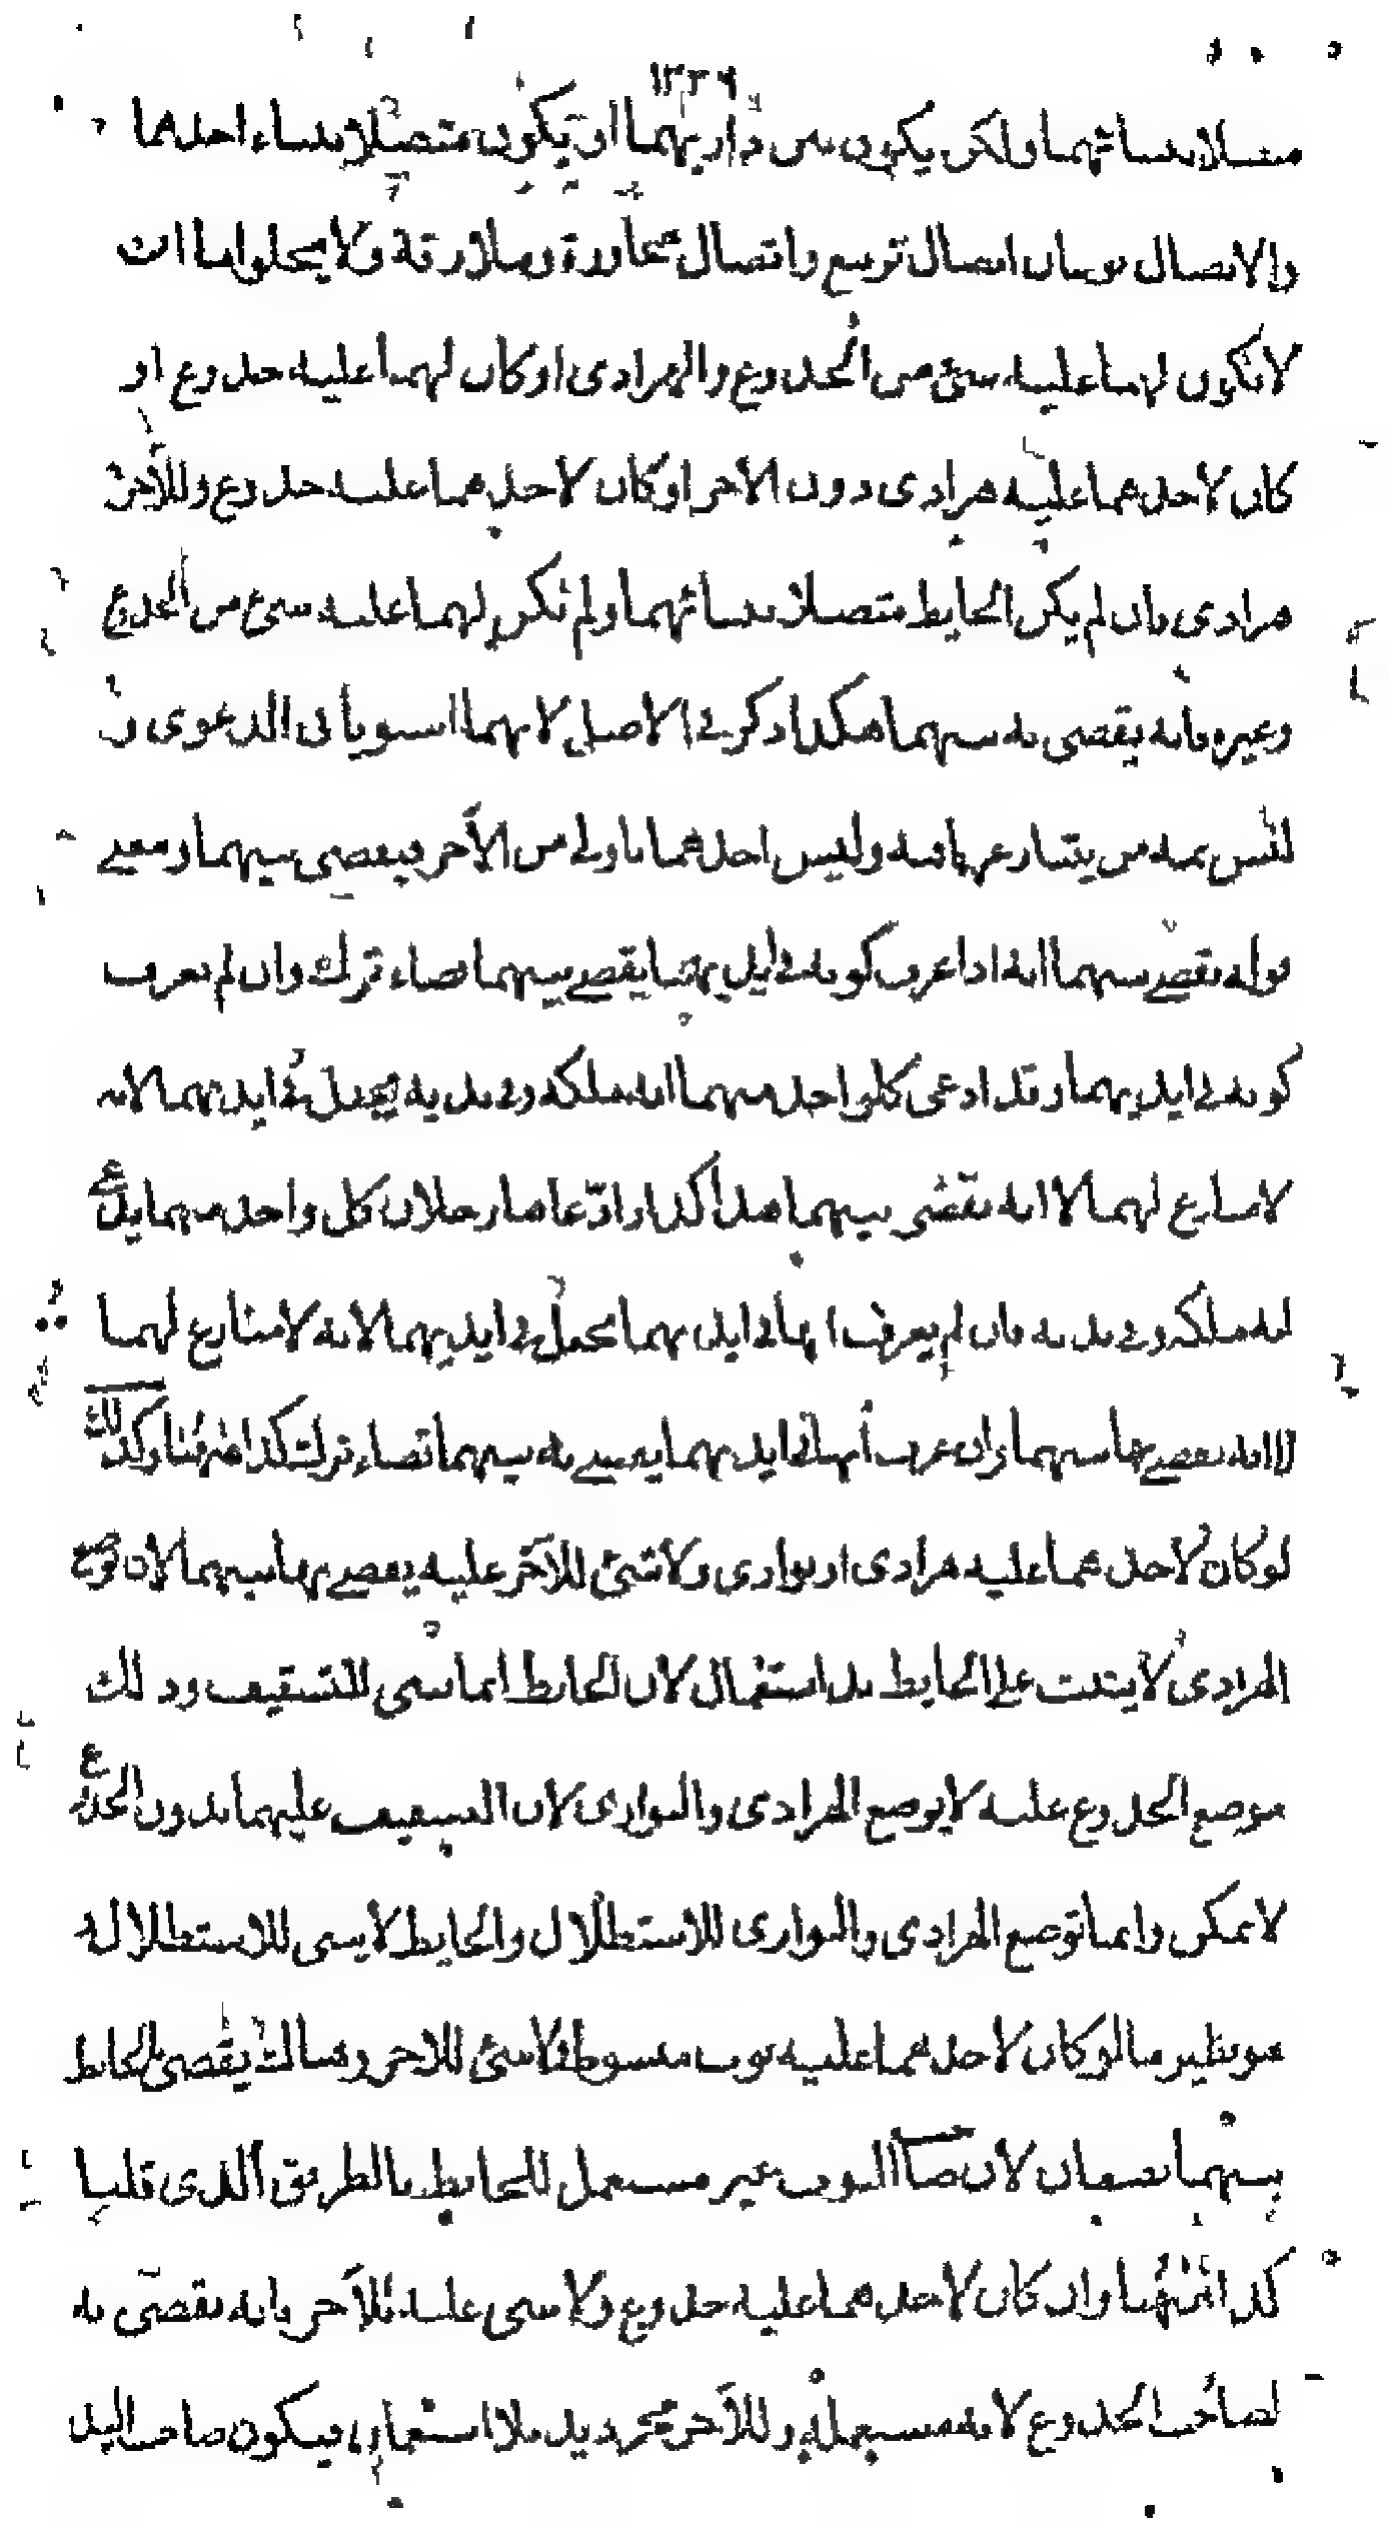 ١٣٣٩
متصلا ببنائهما ولكن يكون بين داريهما او يكون متصلا ببناء احدهما
والاتصال نوعان اتصال تربيع واتصال مجاورة وملازقة ولا يخلوا اما ان
لا يكون لهما عليه شئ من الجذوع والهرادى او كان لهما عليه جذوع او
كان لاحدهما عليه هرادى دون الاخر او كان لاحدهما عليه جذوع وللآخر
هرادى فان لم يكن الحايط متصلا ببنائهما ولم يكن لهما عليه شئ من الجذوع
وغيره فانه يقضى به بينهما هكذا ذكر في الاصل لانهما استويا فى الدعوى و
ليس ثمه من ينازعهما فيه وليس احدهما باولى من الآخر فيقضى بينهما ومعنى
قوله يقضى بينهما انه اذا عرف كونه في ايديهما يقضى بينهما قضاء ترك وان لم يعرف
كونه في ايديهما وقد ادعى كل واحد منهما انه ملكه وفي يديه يجعل في ايديهما لانه
لا منازع لهما لا انه يقضى بينهما هذا كدار ادّعاها رجلان كل واحد منهما يدعي
انه ملكه وفي يديه فان لم يعرف انها في ايديهما يجعل في ايديهما لانه لا منازع لهما
لا انه يقضى بها بينهما وان عرف انها في ايديهما يقضي به بينهما قضاء ترك كذا ههنا وكذلك
لو كان لاحدهما عليه هرادى او بوارى ولا شئ للآخر عليه يقضى بها بينهما لان وضع
الهرادى لا يثبت على الحايط يد استعمال لان الحايط انما يبنى للتسقيف وذلك
بوضع الجذوع عليه لا بوضع الهرادى والبوارى لان التسقيف عليهما بدون الجذوع
لا يمكن وانما توضع الهرادى والبوارى للاستظلال والحايط لا يبنى للاستظلال له
هو نظير ما لو كان لاحدهما عليه ثوب مبسوط ولا شئ للاخر وهنالك يقضى بالحايط
بينهما نصفان لان صاحب الثوب غير مستعمل للحايط بالطريق الذى قلنا
كذا ههنا وان كان لاحدهما عليه جذوع ولا شئ عليه للآخر فانه يقضى به
لصاحب الجذوع لانه مستعمل له وللآخر مجرد يد بلا استعمال فيكون صاحب اليد